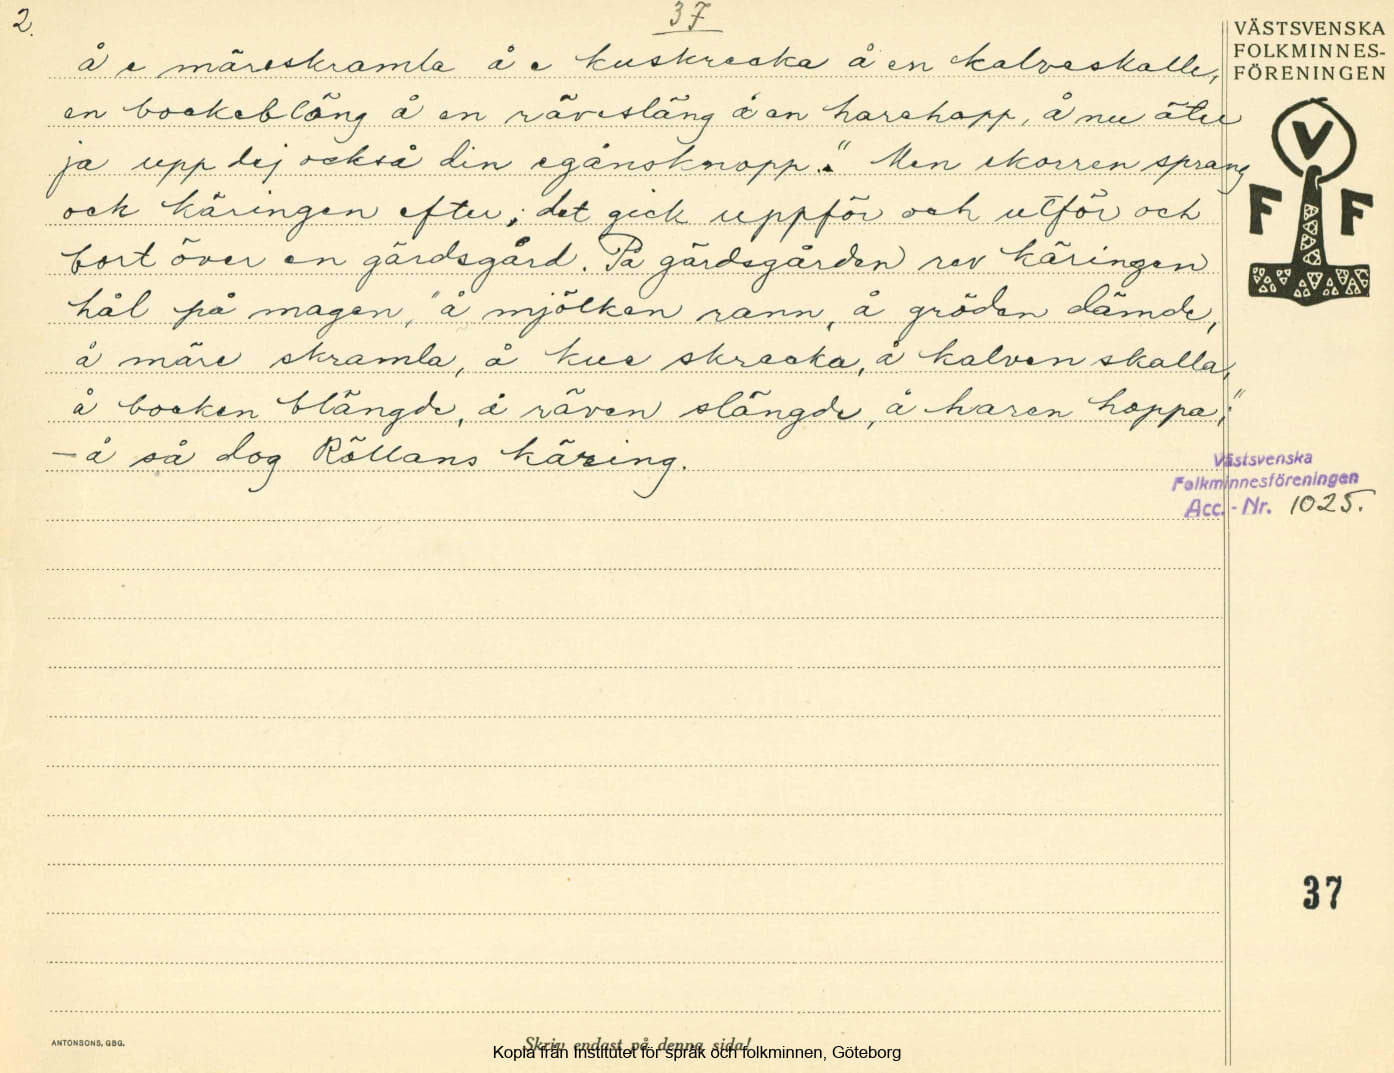 2.
37
å e märeskramla å e kuskräcka å en kalveskalle,
en bockebläng å en rävesläng å en harehopp, å nu äter
ja upp dej också din egånsknopp." Men ekorren sprang
och käringen efter; det gick uppför och utför och
bort över en gärdsgård. På gärdsgården rev käringen
hål på magen, "å mjölken rann, å gröden dämde,
å märe skramla, å kue skräcka, å kalven skalla,
å bocken blängde, å räven slängde, å haren hoppa;"
– å så dog Röllans käring.
VÄSTSVENSKA
FOLKMINNES-
FÖRENINGEN
V
F F
Västsvenska
Folkminnesföreningen
Acc.-Nr. 1025.
37
ANTONSONS, GBG.
Skriv endast på denna sida!
Kopia från Institutet för språk och folkminnen, Göteborg